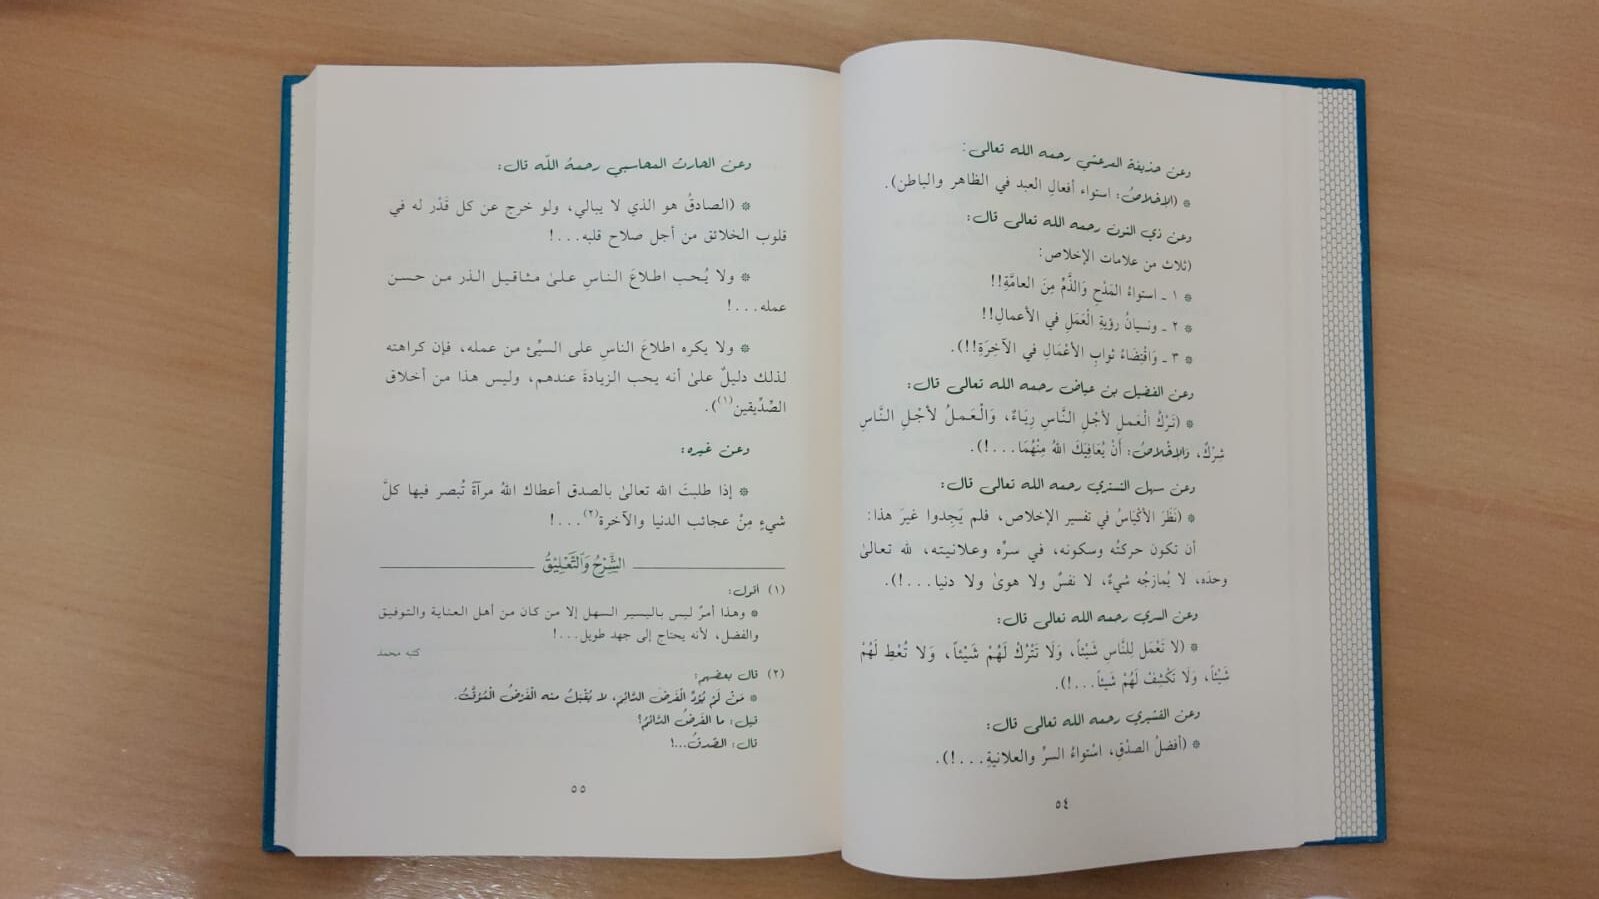 وعن حذيفة المرعشي رحمه الله تعالى:
* (الإخلاصُ: استواء أفعالِ العبد في الظاهر والباطن).
وعن ذي النون رحمه الله تعالى قال:
(ثلاث من علامات الإخلاص:
* ١ ـ استواءُ المَدْحِ وَالذَّمِّ مِنَ العامَّةِ!!
* ٢ ـ ونسيانُ رؤيةِ الْعَمَلِ في الأعمالِ!!
* ٣ ـ وَاقْتِضَاءُ ثوابِ الأعْمَالِ في الآخِرَةِ!!).
وعن الفضيل بن عياض رحمه الله تعالى قال:
* (تَرْكُ الْعَملِ لأجْلِ النَّاسِ رِيَاءٌ، وَالْعَمـلُ لأجْـلِ النَّاسِ
شِرْكٌ، وَالإخْلاصُ: أَنْ يُعَافِيَكَ اللهُ مِنْهُمَا...!).
وعن سهل التستري رحمه الله تعالى قال:
* (نَظَرَ الأكْيَاسُ في تفسير الإخلاص، فلم يَجِدوا غيرَ هذا:
أن تكون حركتُه وسكونه، في سرِّه وعلانيته، لله تعالىٰ
وحدَه، لا يُمازجُه شيءٌ، لا نفسٌ ولا هوىٰ ولا دنيا...!).
وعن السري رحمه الله تعالى قال:
* (لا تَعْمَل لِلنَّاسِ شَيْئاً، وَلَا تَتْرُكْ لَهُمْ شَيْئاً، وَلا تُعْطِ لَهُمْ
شَيْئاً، وَلَا تَكْشِفْ لَهُمْ شَيئاً...!).
وعن القشيري رحمه الله تعالى قال:
* (أفضلُ الصدْقِ، اسْتواءُ السرِّ والعلانيةِ...!).
٥٤
وعن الحارث المحاسبي رحمهُ اللّه قال:
* (الصادقُ هو الذي لا يبالي، ولو خرج عن كل قَدْر له في
قلوب الخلائق من أجل صلاح قلبه...!
* ولا يُـحب اطلاعَ الناسِ علـىٰ مثاقيـل الذر مـن حسـن
عمله...!
* ولا يكره اطلاعَ الناس على السيِّئ من عمله، فإن كراهته
لذلك دليلٌ علىٰ أنه يحب الزيادةَ عندهم، وليس هذا من أخلاق
الصِّدِّيقين(١)).
وعن غيره:
* إذا طلبتَ الله تعالىٰ بالصدق أعطاك اللهُ مرآةً تُبصر فيها كلَّ
شيءٍ مِنْ عجائب الدنيا والآخرة(٢)...!
الشَّرْحُ وَالتَّعْلِيْقُ
(١) أقول:
* وهذا أمرٌ ليس باليسير السهل إلا من كان من أهل العناية والتوفيق
والفضل، لأنه يحتاج إلى جهد طويل...!
كتبه محمد
(٢) قال بعضهم:
* مَنْ لَمْ يُؤَدِّ الْفَرْضَ الدَّائِمَ، لا يُقْبَلُ منه الْفَرْضُ الْمُؤَقَّتُ.
قيل: ما الفَرْضُ الدَّائمُ؟
قال: الصّدقُ...!
٥٥